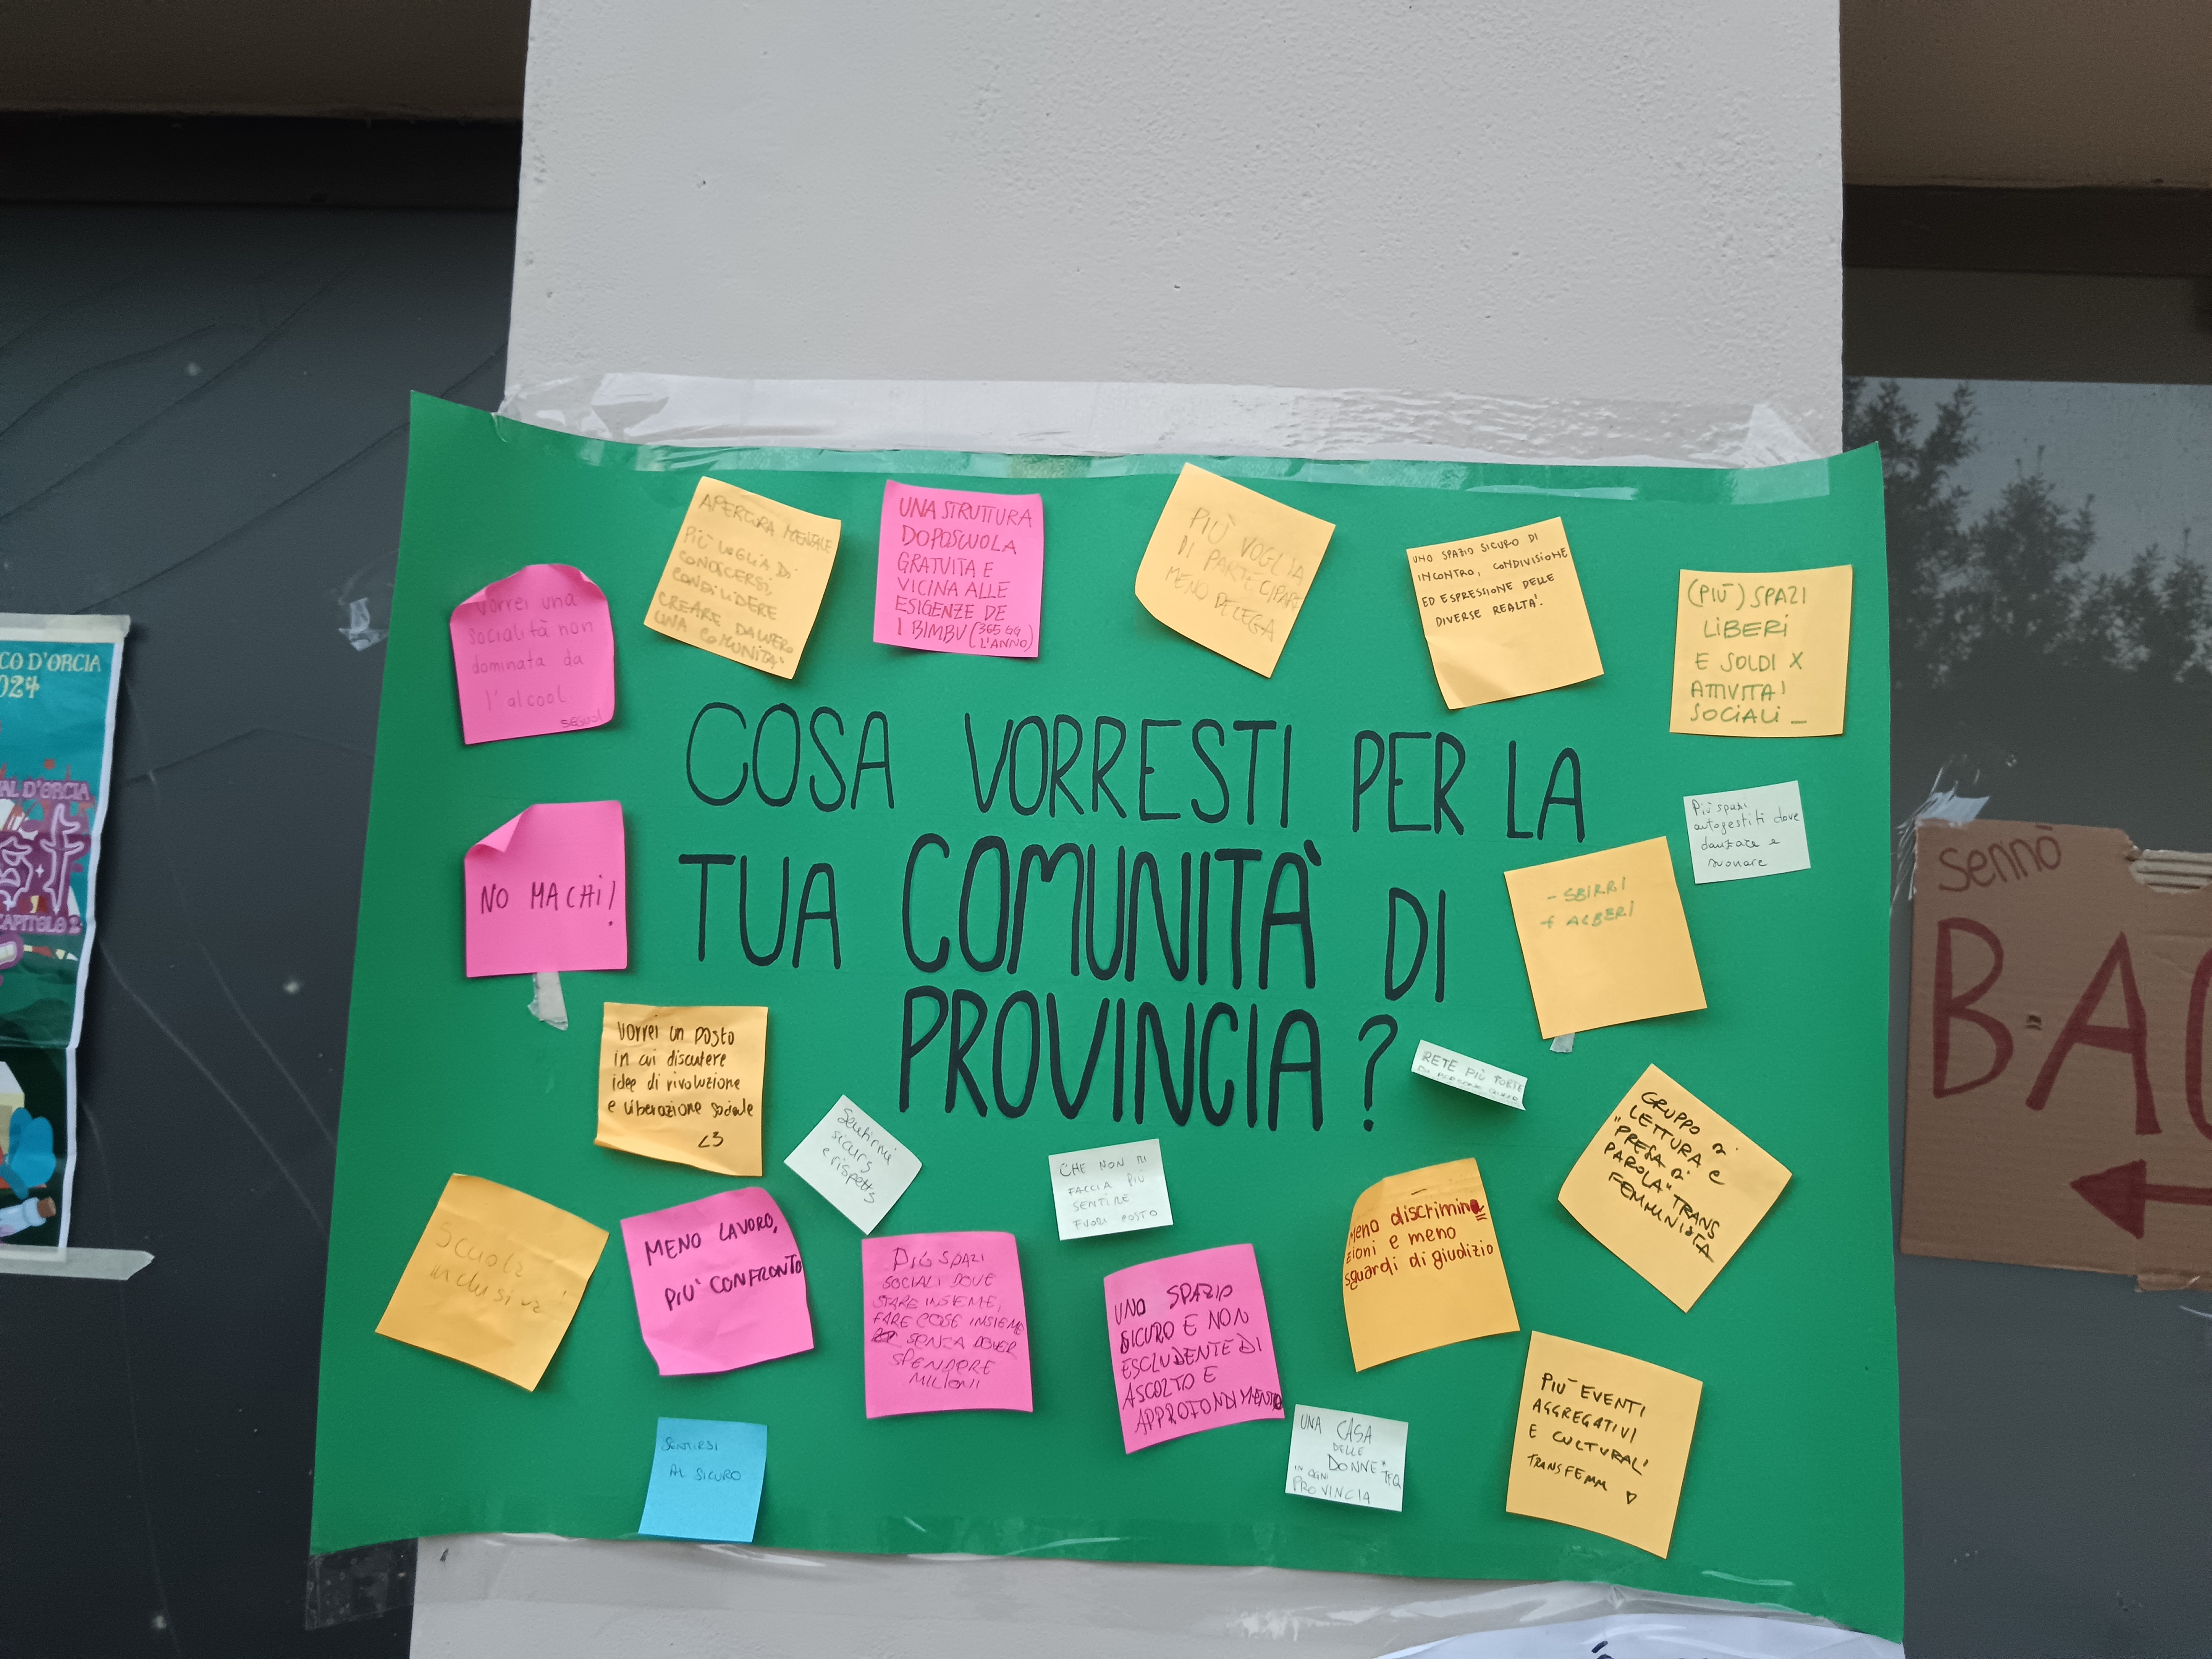 CO D'ORCIA
024
AL D'ORCIA
CAPITOLO 2
vorrei una
socialità non
dominata da
l'alcool
APERTURA MENTALE
PIÙ VOGLIA DI
CONOSCERSI,
CONDIVIDERE
CREARE DAVVERO
UNA COMUNITA'
UNA STRUTTURA
DOPOSCUOLA
GRATUITA E
VICINA ALLE
ESIGENZE DE
I BIMBU (365 GG
L'ANNO)
PIÙ VOGLIA
DI PARTECIPARE
MENO DELEGA
UNO SPAZIO SICURO DI
INCONTRO, CONDIVISIONE
ED ESPRESSIONE DELLE
DIVERSE REALTA'.
(PIÙ) SPAZI
LIBERI
E SOLDI X
ATTIVITA'
SOCIALI _
COSA VORRESTI PER LA
TUA COMUNITÀ DI
PROVINCIA?
NO MACHI!
Più spazi
autogestiti dove
danzare e
suonare
- SBIRRI
+ ALBERI
sennò
BA
vorrei un posto
in cui discutere
idee di rivoluzione
e liberazione sociale
<3
Sentirmi
sicurs
e rispetts
RETE PIÙ FORTE
DI PERSONE
CHE NON MI
FACCIA PIÙ
SENTIRE
FUORI POSTO
GRUPPO DI
LETTURA e
"PRESA DI
PAROLA" TRANS
FEMMINISTA
Scuola
inclusiva
MENO LAVORO,
PIU' CONFRONTO
PIÙ SPAZI
SOCIALI DOVE
STARE INSIEME,
FARE COSE INSIEME
SENZA DOVER
SPENDERE
MILIONI
UNO SPAZIO
SICURO E NON
ESCLUDENTE DI
ASCOLTO E
APPROFONDIMENTO
Meno discrimina
zioni e meno
sguardi di giudizio
SENTIRSI
AL SICURO
UNA CASA
DELLE
DONNE* TFQ
IN OGNI
PROVINCIA
PIU' EVENTI
AGGREGATIVI
E CULTURALI
TRANSFEMM